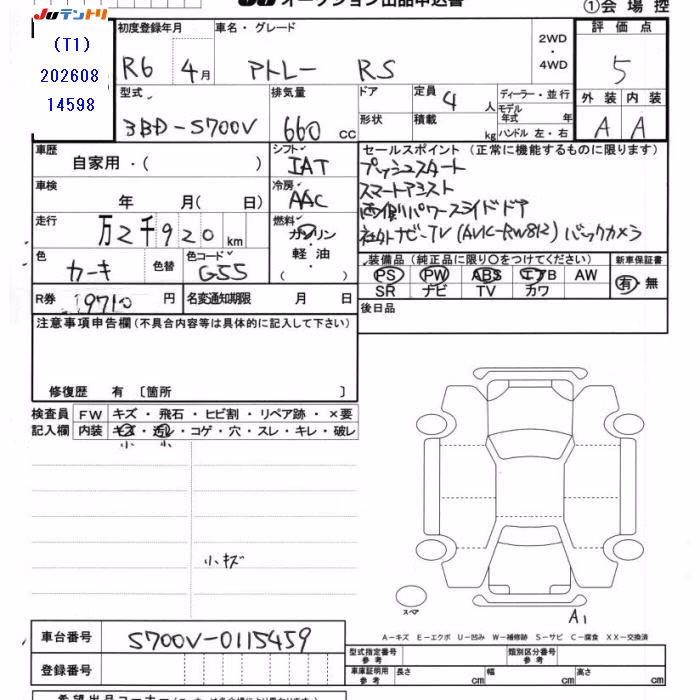 JUテントリ
オークション出品申込書
①会場控
(T1)
202608
14598
初度登録年月
車名・グレード
2WD
・
4WD
評価点
R6 4月
アトレー RS
5
型式
排気量
ドア
定員 4 人
ディーラー・並行
外装 内装
3BD-S700V
660 cc
形状
積載 kg
モデル年式 年
ハンドル 左・右
A A
車歴
自家用・( )
シフト
IAT
セールスポイント (正常に機能するものに限ります)
プッシュスタート
車検
年 月( 日)
冷房
AAC
スマートアシスト
両側パワースライドドア
走行
万2千920km
燃料
ガソリン
・
軽油
・
( )
社外ナビ-TV (AVIC-RW812) バックカメラ
色
カーキ
色替
色コード
G55
装備品 (純正品に限り○をつけてください)
新車保証書
PS PW ABS エアB AW
有・無
SR ナビ TV カワ
R券 19710 円
名変通知期限 月 日
後日品
注意事項申告欄(不具合内容等は具体的に記入して下さい)
修復歴 有 〔箇所 〕
検査員 FW キズ・飛石・ヒビ割・リペア跡・×要
記入欄 内装 キズ・汚レ・コゲ・穴・スレ・キレ・破レ
小 小
小キズ
スペア
A1
A-キズ E-エクボ U-凹み W-補修跡 S-サビ C-腐食 XX-交換済
車台番号 S700V-0115459
型式指定番号 参考
類別区分番号 参考
登録番号
車庫証明用 参考 長さ cm 幅 cm 高さ cm